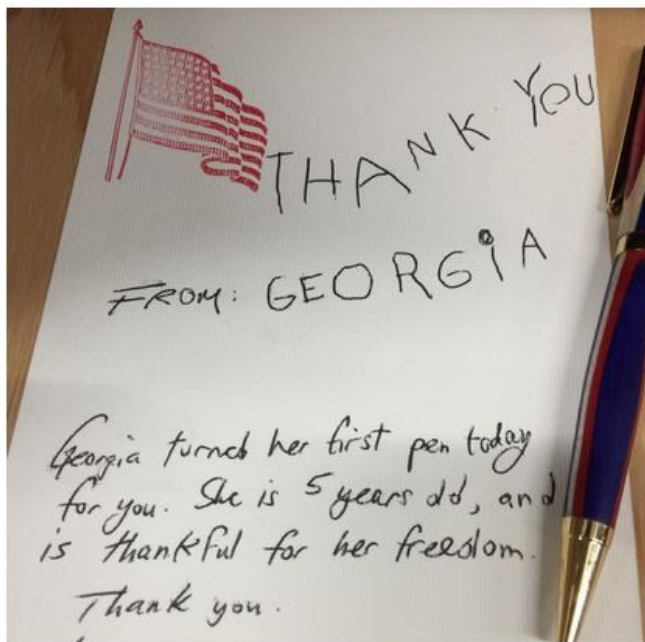 THANK YOU
FROM: GEORGiA
Georgia turned her first pen today
for you. She is 5 years old, and
is thankful for her freedom.
Thank you.